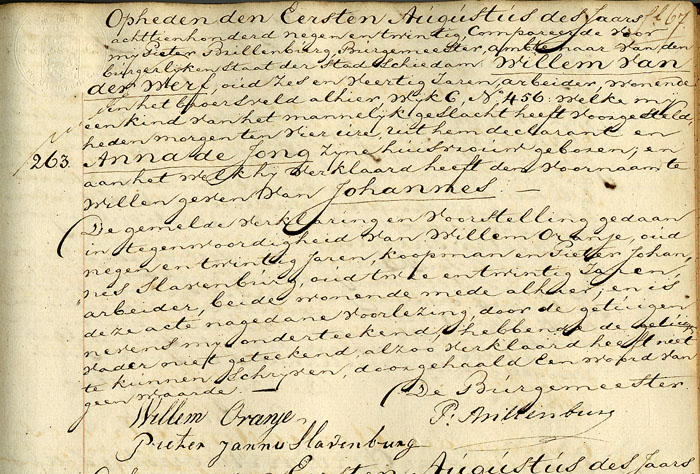 Opheden den Eersten Augustus des Jaars 67.
achttienhonderd negen en twintig, Compareerde voor
my Pieter Brillenburg, Burgemeester, ambtenaar van den
burgerlyken Staat der Stad Schiedam Willem van
der Werf, oud Zes en Veertig Jaren, arbeider, wonende
in het Broersveld alhier, Wyk C, No. 456. Welke my
een kind van het mannelijk geslacht heeft voorgesteld,
heden morgen ten vier ure, uit hem declarant en
263. Anna de Jong zyne huisvrouw geboren; en
aan het welk hy verklaard heeft den voornaam te
willen geven van Johannes —
De gemelde verklaring en voorstelling gedaan
in tegenwoordigheid van Willem Oranje, oud
negen en twintig Jaren, koopman en Pieter Johan,
nis Slavenburg, oud twee en twintig Jaren,
arbeider, beide wonende mede alhier; en is
deze acte na gedane voorlezing, door de getuigen
nevens my onderteekend, hebbende de getuig
vader niet geteekend, alzoo verklaard heeft niet
te kunnen schrijven, doorgehaald een woord van
geen waarde.
De Burgemeester
Willem Oranje P. Brillenburg
Pieter Jannis Slavenburg
Opheden den Eersten Augustus des Jaars